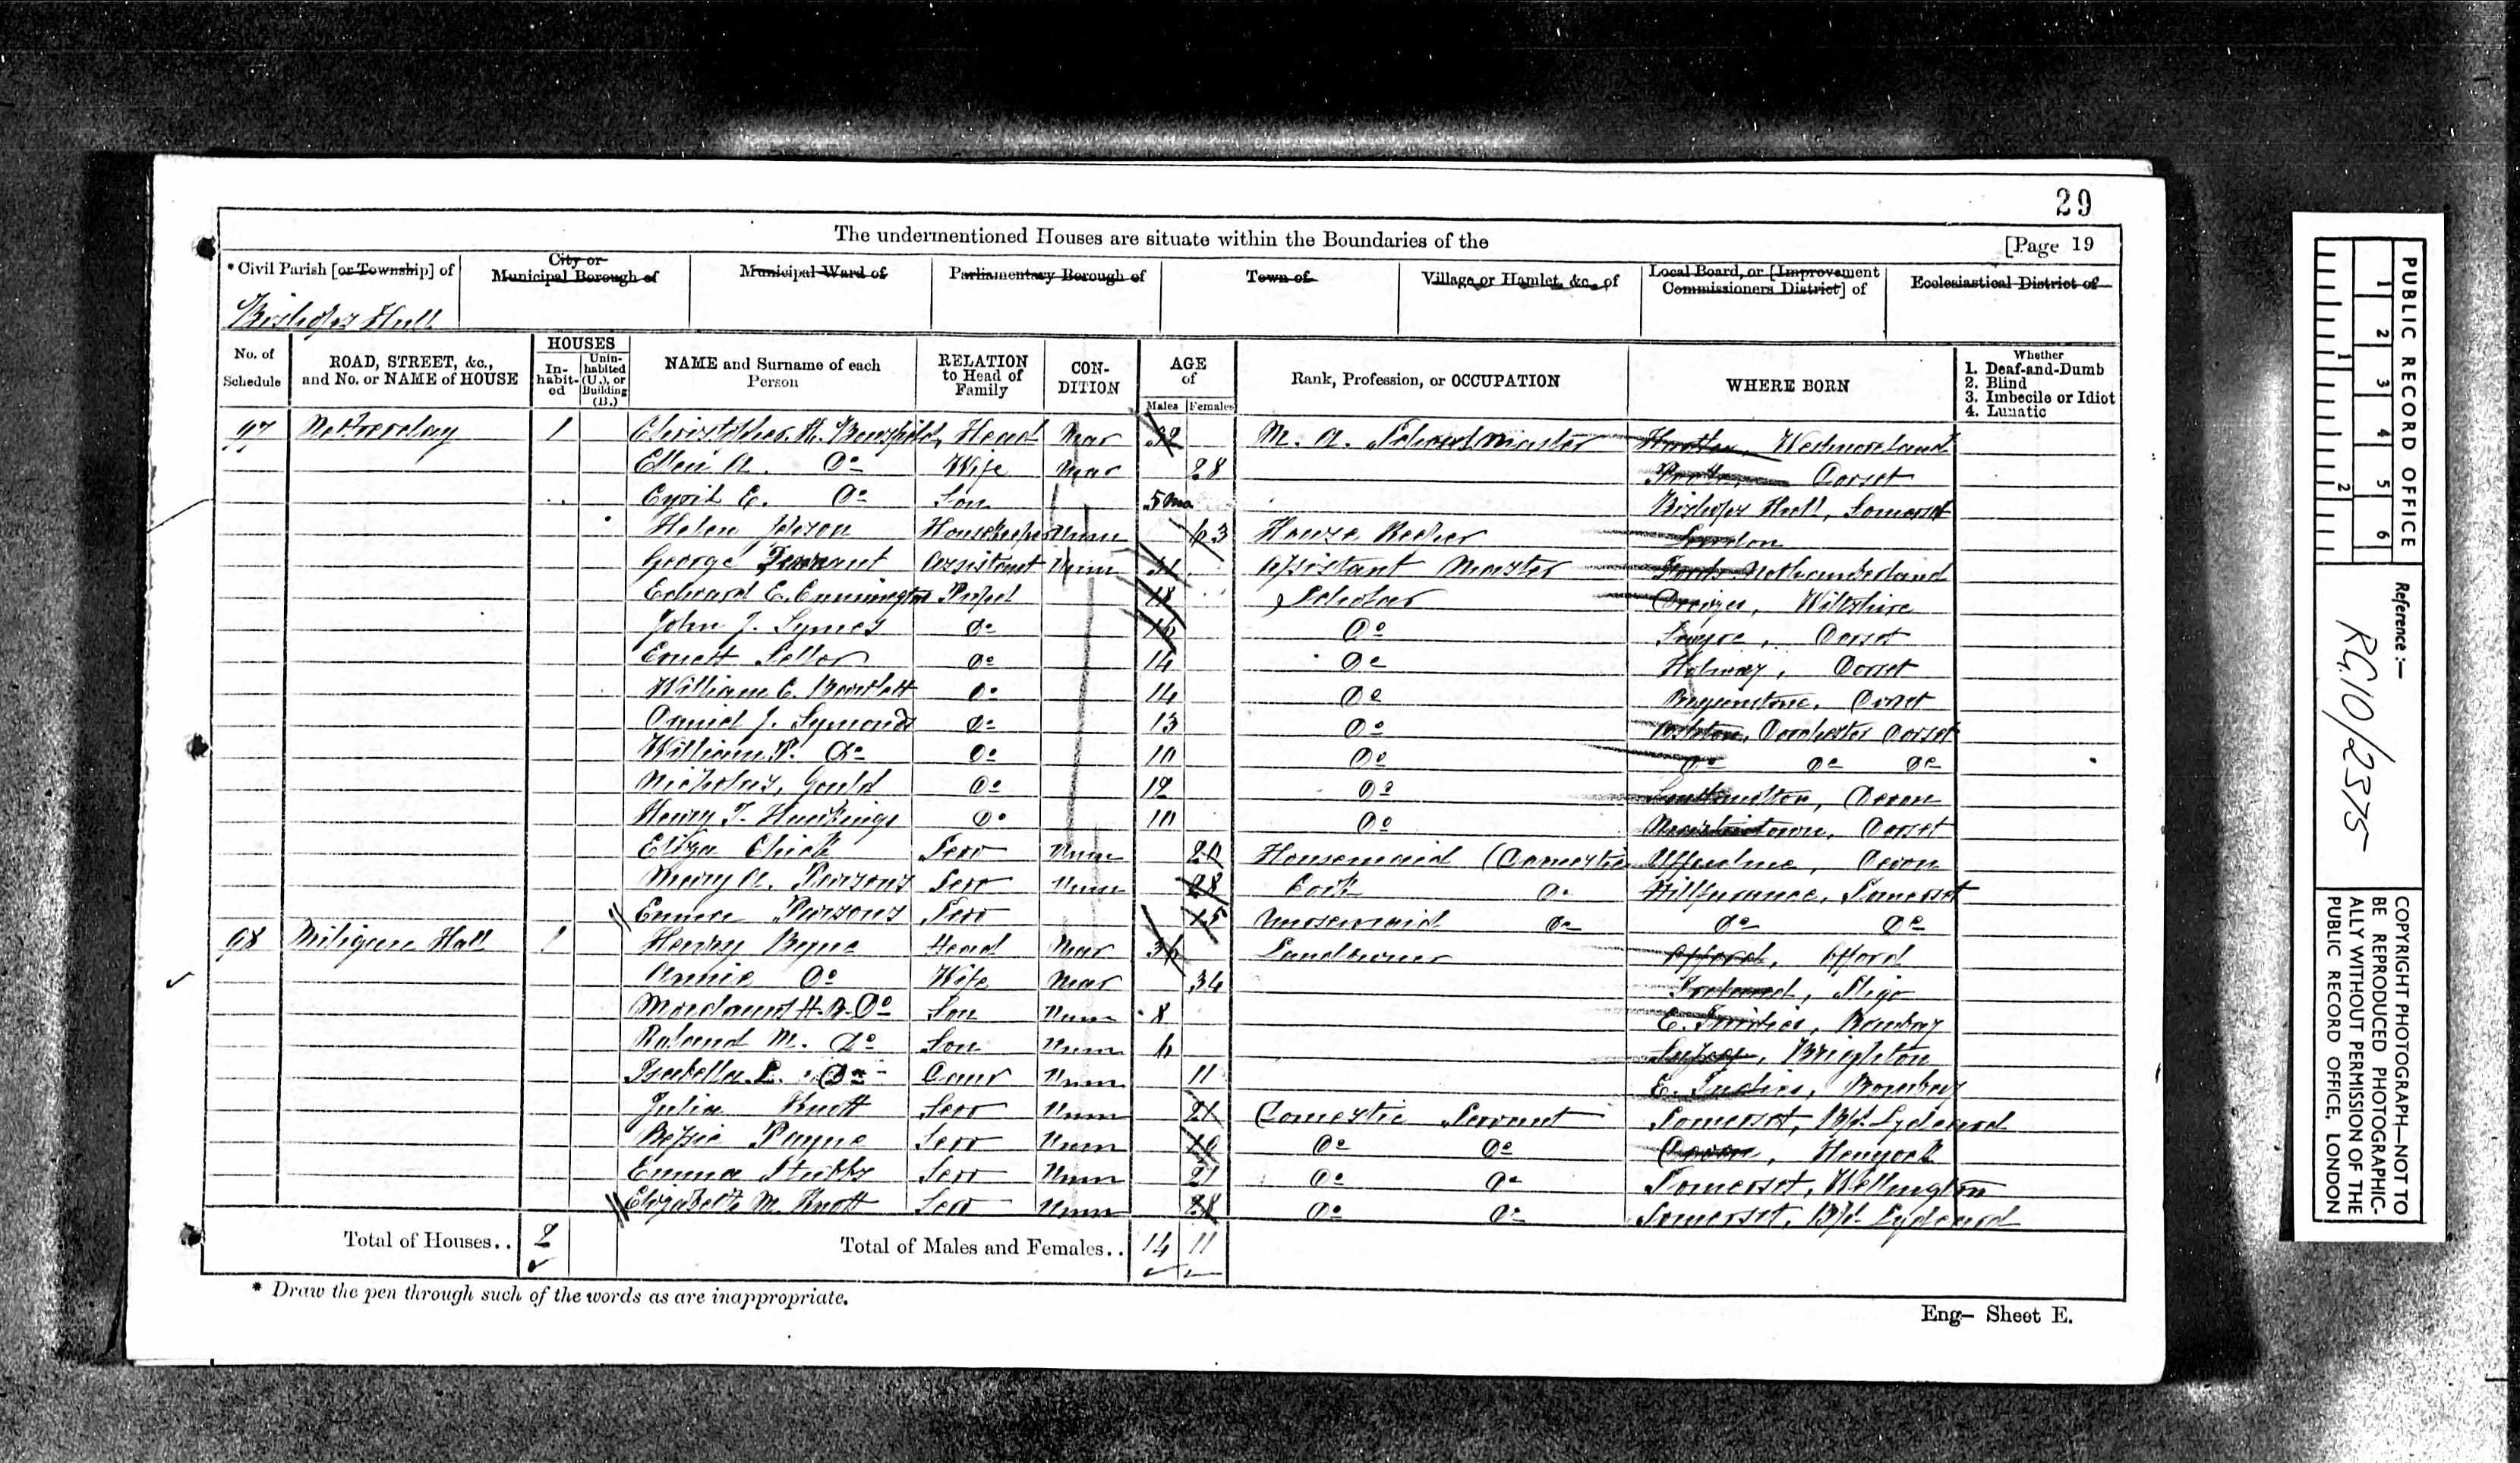 29
The undermentioned Houses are situate within the Boundaries of the
[Page 19
* Civil Parish [or Township] of
City or Municipal Borough of
Municipal Ward of
Parliamentary Borough of
Town of
Village or Hamlet, &c., of
Local Board, or [Improvement Commissioners District] of
Ecclesiastical District of
Bishops Hull
No. of Schedule
ROAD, STREET, &c., and No. or NAME of HOUSE
HOUSES
In-habit-ed
Unin-habited (U.), or Building (B.)
NAME and Surname of each Person
RELATION to Head of Family
CON-DITION
AGE of
Males
Females
Rank, Profession, or OCCUPATION
WHERE BORN
Whether
1. Deaf-and-Dumb
2. Blind
3. Imbecile or Idiot
4. Lunatic
97 Netherclay 1 Christopher H. Bousfield Head Mar M. A. Schoolmaster Westmoreland
Ellen A. Do Wife Mar 28 Dorset
Cyril E. Do Son 5 mo Bishops Hull, Somerset
Helen Housekeeper Unm 63 House Keeper London
George Assistant Unm 31 Assistant Master Northumberland
Edward E. Cunnington Pupil 18 Scholar Devizes, Wiltshire
John J. Symes Do 16 Do Dorset
Ernest Do 14 Do Dorset
William C. Bartlett Do 14 Do Dorset
Daniel J. Symonds Do 13 Do Dorchester Dorset
William P. Do Do 10 Do Do Do Do
Nicholas Gould Do 12 Do Devon
Henry T. Hawkings Do 10 Do Martinstown, Dorset
Eliza Chick Serv Unm 20 Housemaid (Domestic Uffculme, Devon
Mary A. Parsons Serv Unm 28 Cook Do Hillfarance, Somerset
Emma Parsons Serv 15 Nursemaid Do Do Do
98 Miligan Hall 1 Henry Head Mar 36 Landowner
Annie Do Wife Mar 34 Ireland, Sligo
Do Son Unm 8 E. Indies, Bombay
Roland M. Do Son Unm 6 Sussex, Brighton
Isabella L. Do Daur Unm 11 E. Indies, Bombay
Julia Knott Serv Unm 21 Domestic Servant Somerset, Bps Lydeard
Bessie Payne Serv Unm 19 Do Do Devon, Hemyock
Emma Stubbs Serv Unm 21 Do Do Somerset, Wellington
Elizabeth M Knott Serv Unm 28 Do Do Somerset, Bps Lydeard
Total of Houses.. 2
Total of Males and Females.. 14 11
* Draw the pen through such of the words as are inappropriate.
Eng- Sheet E.
PUBLIC RECORD OFFICE
1 2 3 4 5 6
1 2
Reference :-
RG 10/2375
COPYRIGHT PHOTOGRAPH—NOT TO
BE REPRODUCED PHOTOGRAPHIC-
ALLY WITHOUT PERMISSION OF THE
PUBLIC RECORD OFFICE, LONDON